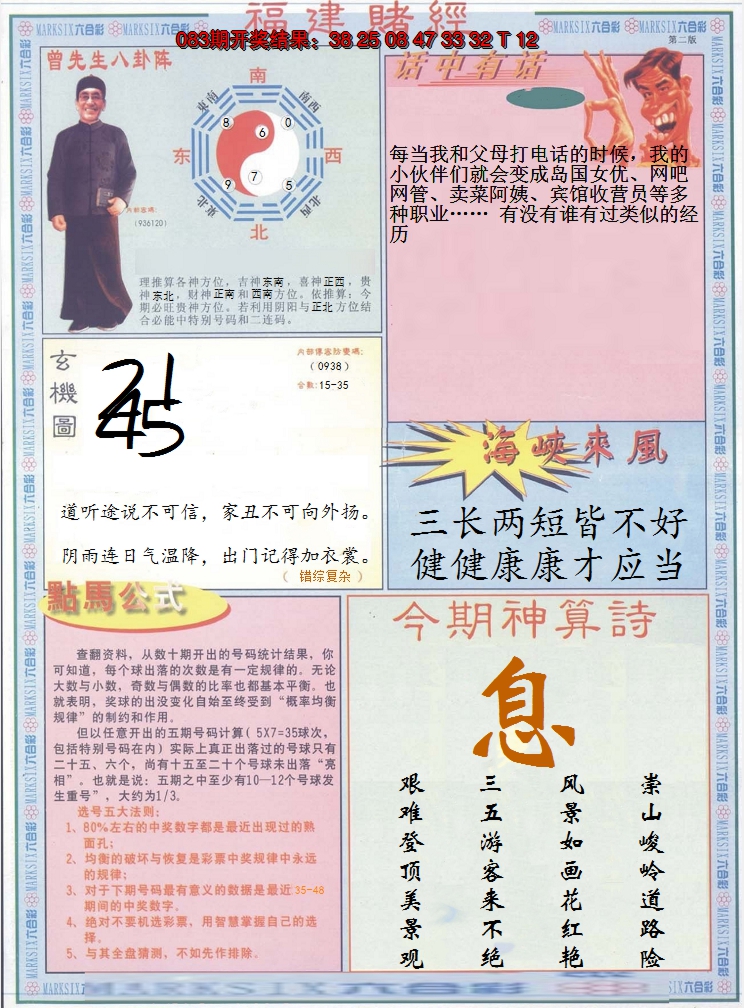 福建賭經
083期开奖结果：38 25 08 47 33 32 T 12
MARKSIX六合彩
第二版
曾先生八卦阵
南
东南
西南
8
6
0
东
西
9
7
5
东北
西北
北
内部密碼:
(936120)
理推算各神方位，吉神东南，喜神正西，贵
神东北，财神正南和西南方位。依推算：今
期必旺贵神方位。若利用阴阳与正北方位结
合必能中特别号码和二连码。
话中有话
每当我和父母打电话的时候，我的
小伙伴们就会变成岛国女优、网吧
网管、卖菜阿姨、宾馆收营员等多
种职业…… 有没有谁有过类似的经
历
玄機圖
内部傳客防密碼:
(0938)
合数:15-35
道听途说不可信，家丑不可向外扬。
阴雨连日气温降，出门记得加衣裳。
（ 错综复杂 ）
海峽來風
三长两短皆不好
健健康康才应当
點馬公式
查翻资料，从数十期开出的号码统计结果，你
可知道，每个球出落的次数是有一定规律的。无论
大数与小数，奇数与偶数的比率也都基本平衡。也
就表明，奖球的出没变化自始至终受到“概率均衡
规律”的制约和作用。
但以任意开出的五期号码计算( 5X7=35球次，
包括特别号码在内) 实际上真正出落过的号球只有
二十五、六个，尚有十五至二十个号球未出落“亮
相”。也就是说：五期之中至少有10—12个号球发
生重号”，大约为1/3。
选号五大法则:
1、80%左右的中奖数字都是最近出现过的熟
面孔；
2、均衡的破坏与恢复是彩票中奖规律中永远
的规律；
3、对于下期号码最有意义的数据是最近 35-48
期间的中奖数字。
4、绝对不要机选彩票，用智慧掌握自己的选
择。
5、与其全盘猜测，不如先作排除。
今期神算詩
息
崇山峻岭道路险
风景如画花红艳
三五游客来不绝
艰难登顶美景观